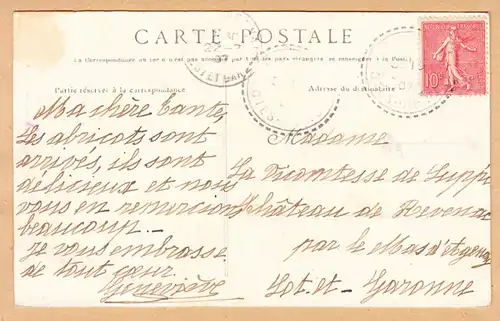 CARTE POSTALE
La Correspondance au recto n'est pas acceptée par tous les pays étrangers, se renseigner à la Poste
Partie réservée à la correspondance
Adresse du destinataire
Ma chère tante,
Les abricots sont
arrivés, ils sont
délicieux et nous
vous en remercions
beaucoup.—
Je vous embrasse
de tout cœur.
Geneviève
Madame
La Vicomtesse de
Château de
par le Mas d'Agenais
Lot-et-Garonne
10